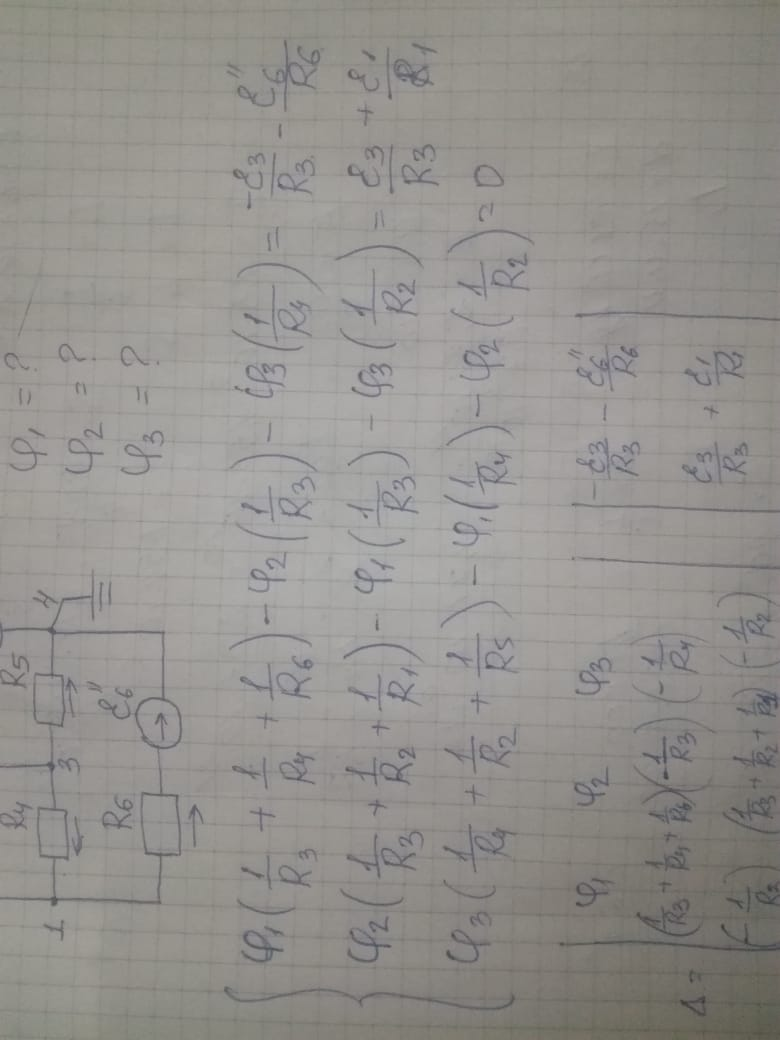 φ₁ = ?
φ₂ = ?
φ₃ = ?
R₄ R₅
1 3 4
R₆ ℰ₆"
φ₁(1/R₃ + 1/R₄ + 1/R₆) - φ₂(1/R₃) - φ₃(1/R₄) = -ℰ₃/R₃ - ℰ₆"/R₆
φ₂(1/R₃ + 1/R₂ + 1/R₁) - φ₁(1/R₃) - φ₃(1/R₂) = ℰ₃/R₃ + ℰ₁'/R₁
φ₃(1/R₄ + 1/R₂ + 1/R₅) - φ₁(1/R₄) - φ₂(1/R₂) = 0
φ₁ φ₂ φ₃
Δ = (1/R₃ + 1/R₄ + 1/R₆) (-1/R₃) (-1/R₄) -ℰ₃/R₃ - ℰ₆"/R₆
(-1/R₃) (1/R₃ + 1/R₂ + 1/R₁) (-1/R₂) ℰ₃/R₃ + ℰ₁'/R₁